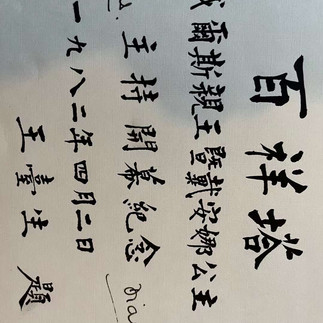 百祥塔
威爾斯親王暨戴安娜公主
主持開幕紀念
Dia
一九八二年四月二日
王生題